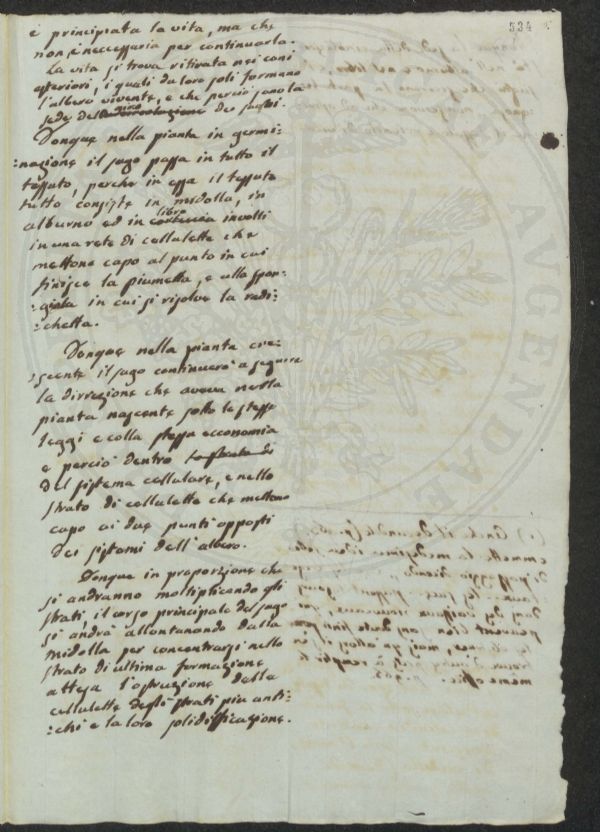 534
è principiata la vita, ma che
non è necessaria per continuarla.
La vita si trova ritirata nei coni
esteriori, i quali da loro soli formano
l'albero vivente, e che perciò sono la
sede del giro dei sughi.
Donque nella pianta in germi:
:nazione il sugo passa in tutto il
tessuto, perchè in essa il tessuto
tutto consiste in midolla, in
libro
alburno ed in corteccia involti
in una rete di cellulette che
mettono capo al punto in cui
finisce la piumetta, e alla spon:
:giola in cui si risolve la radi:
:chetta.
Donque nella pianta cre:
:scente il sugo continuerà a seguire
la direzione che aveva nella
pianta nascente sotto le stesse
leggi e colla stessa economia
e perciò dentro lo strato di
del sistema cellulare, e nello
strato di cellulette che mettono
capo ai due punti opposti
dei sistemi dell'albero.
Donque in proporzione che
si andranno moltiplicando gli
strati, il corso principale del sugo
si andrà allontanando dalla
midolla per concentrarsi nello
strato di ultima formazione
attesa l'ostruzione delle
cellulette degli strati più anti:
:chi e la loro solidificazione.